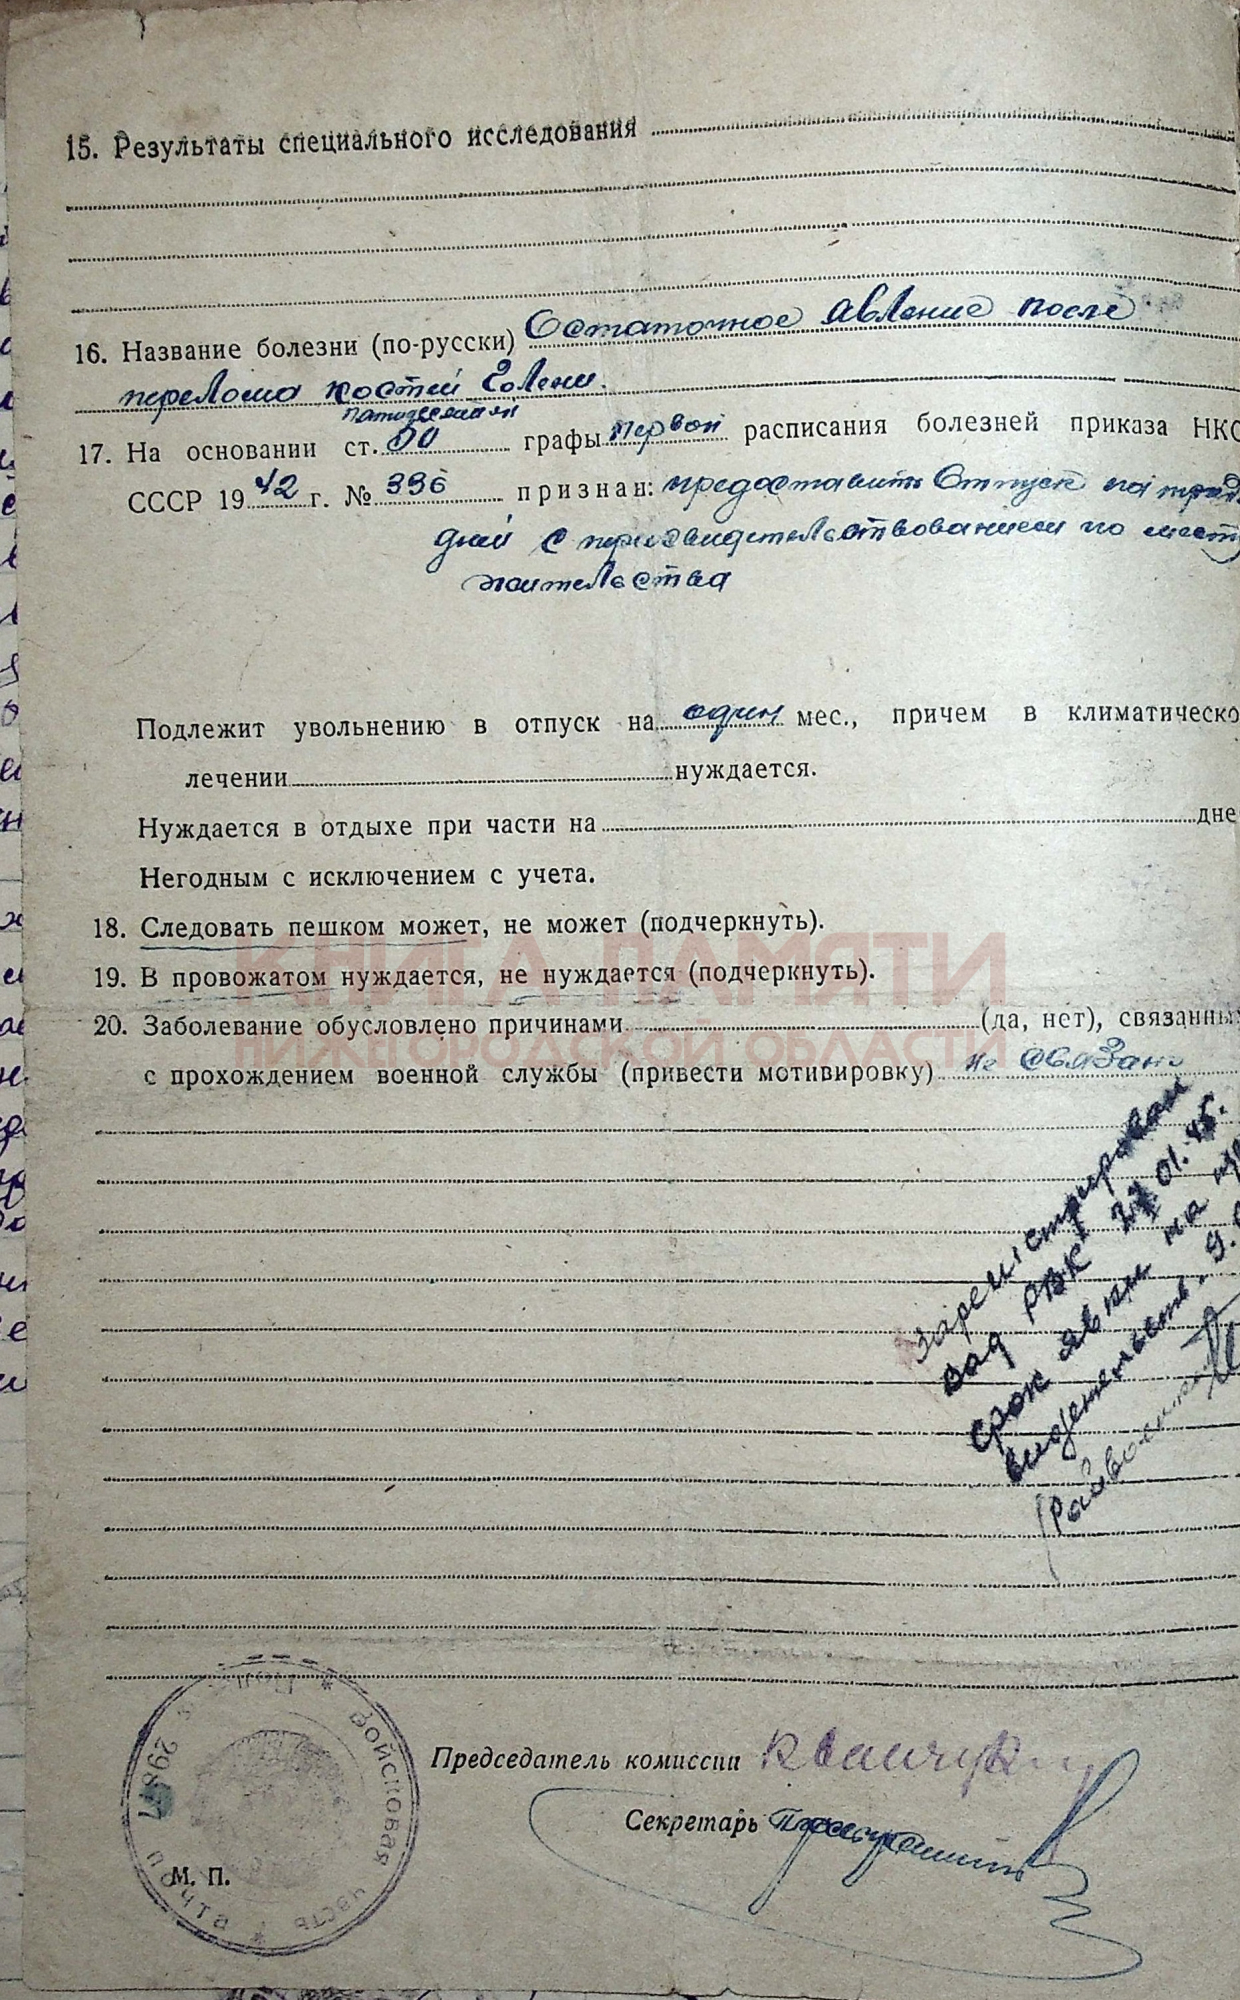 15. Результаты специального исследования
16. Название болезни (по-русски) Остаточное явление после
перелома костей голени.
пятидесятой
17. На основании ст. 50 графы первой расписания болезней приказа НКО
СССР 1942 г. № 336 признан: предоставить отпуск на
дней с пересвидетельствованием по месту
жительства
Подлежит увольнению в отпуск на один мес., причем в климатическо
лечении нуждается.
Нуждается в отдыхе при части на дне
Негодным с исключением с учета.
18. Следовать пешком может, не может (подчеркнуть).
КНИГА ПАМЯТИ
19. В провожатом нуждается, не нуждается (подчеркнуть).
20. Заболевание обусловлено причинами (да, нет), связанны
НИЖЕГОРОДСКОЙ ОБЛАСТИ
с прохождением военной службы (привести мотивировку) не связано
Зарегистрирован
Вад РВК 27 01.45.
срок явки на
видетельств. 9.
Райвоенком
Председатель комиссии Квашук
Секретарь
Войсковая часть * Полевая почта * 29877
М. П.